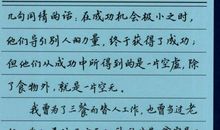 几句同情的话：在成功机会极小之时，
他们导引别人的力量，终于获得了成功；
但他们从成功中所得到的是一片空虚，除
了食物外，就是一片空无。
我曾为了三餐而替人工作，也曾当过老